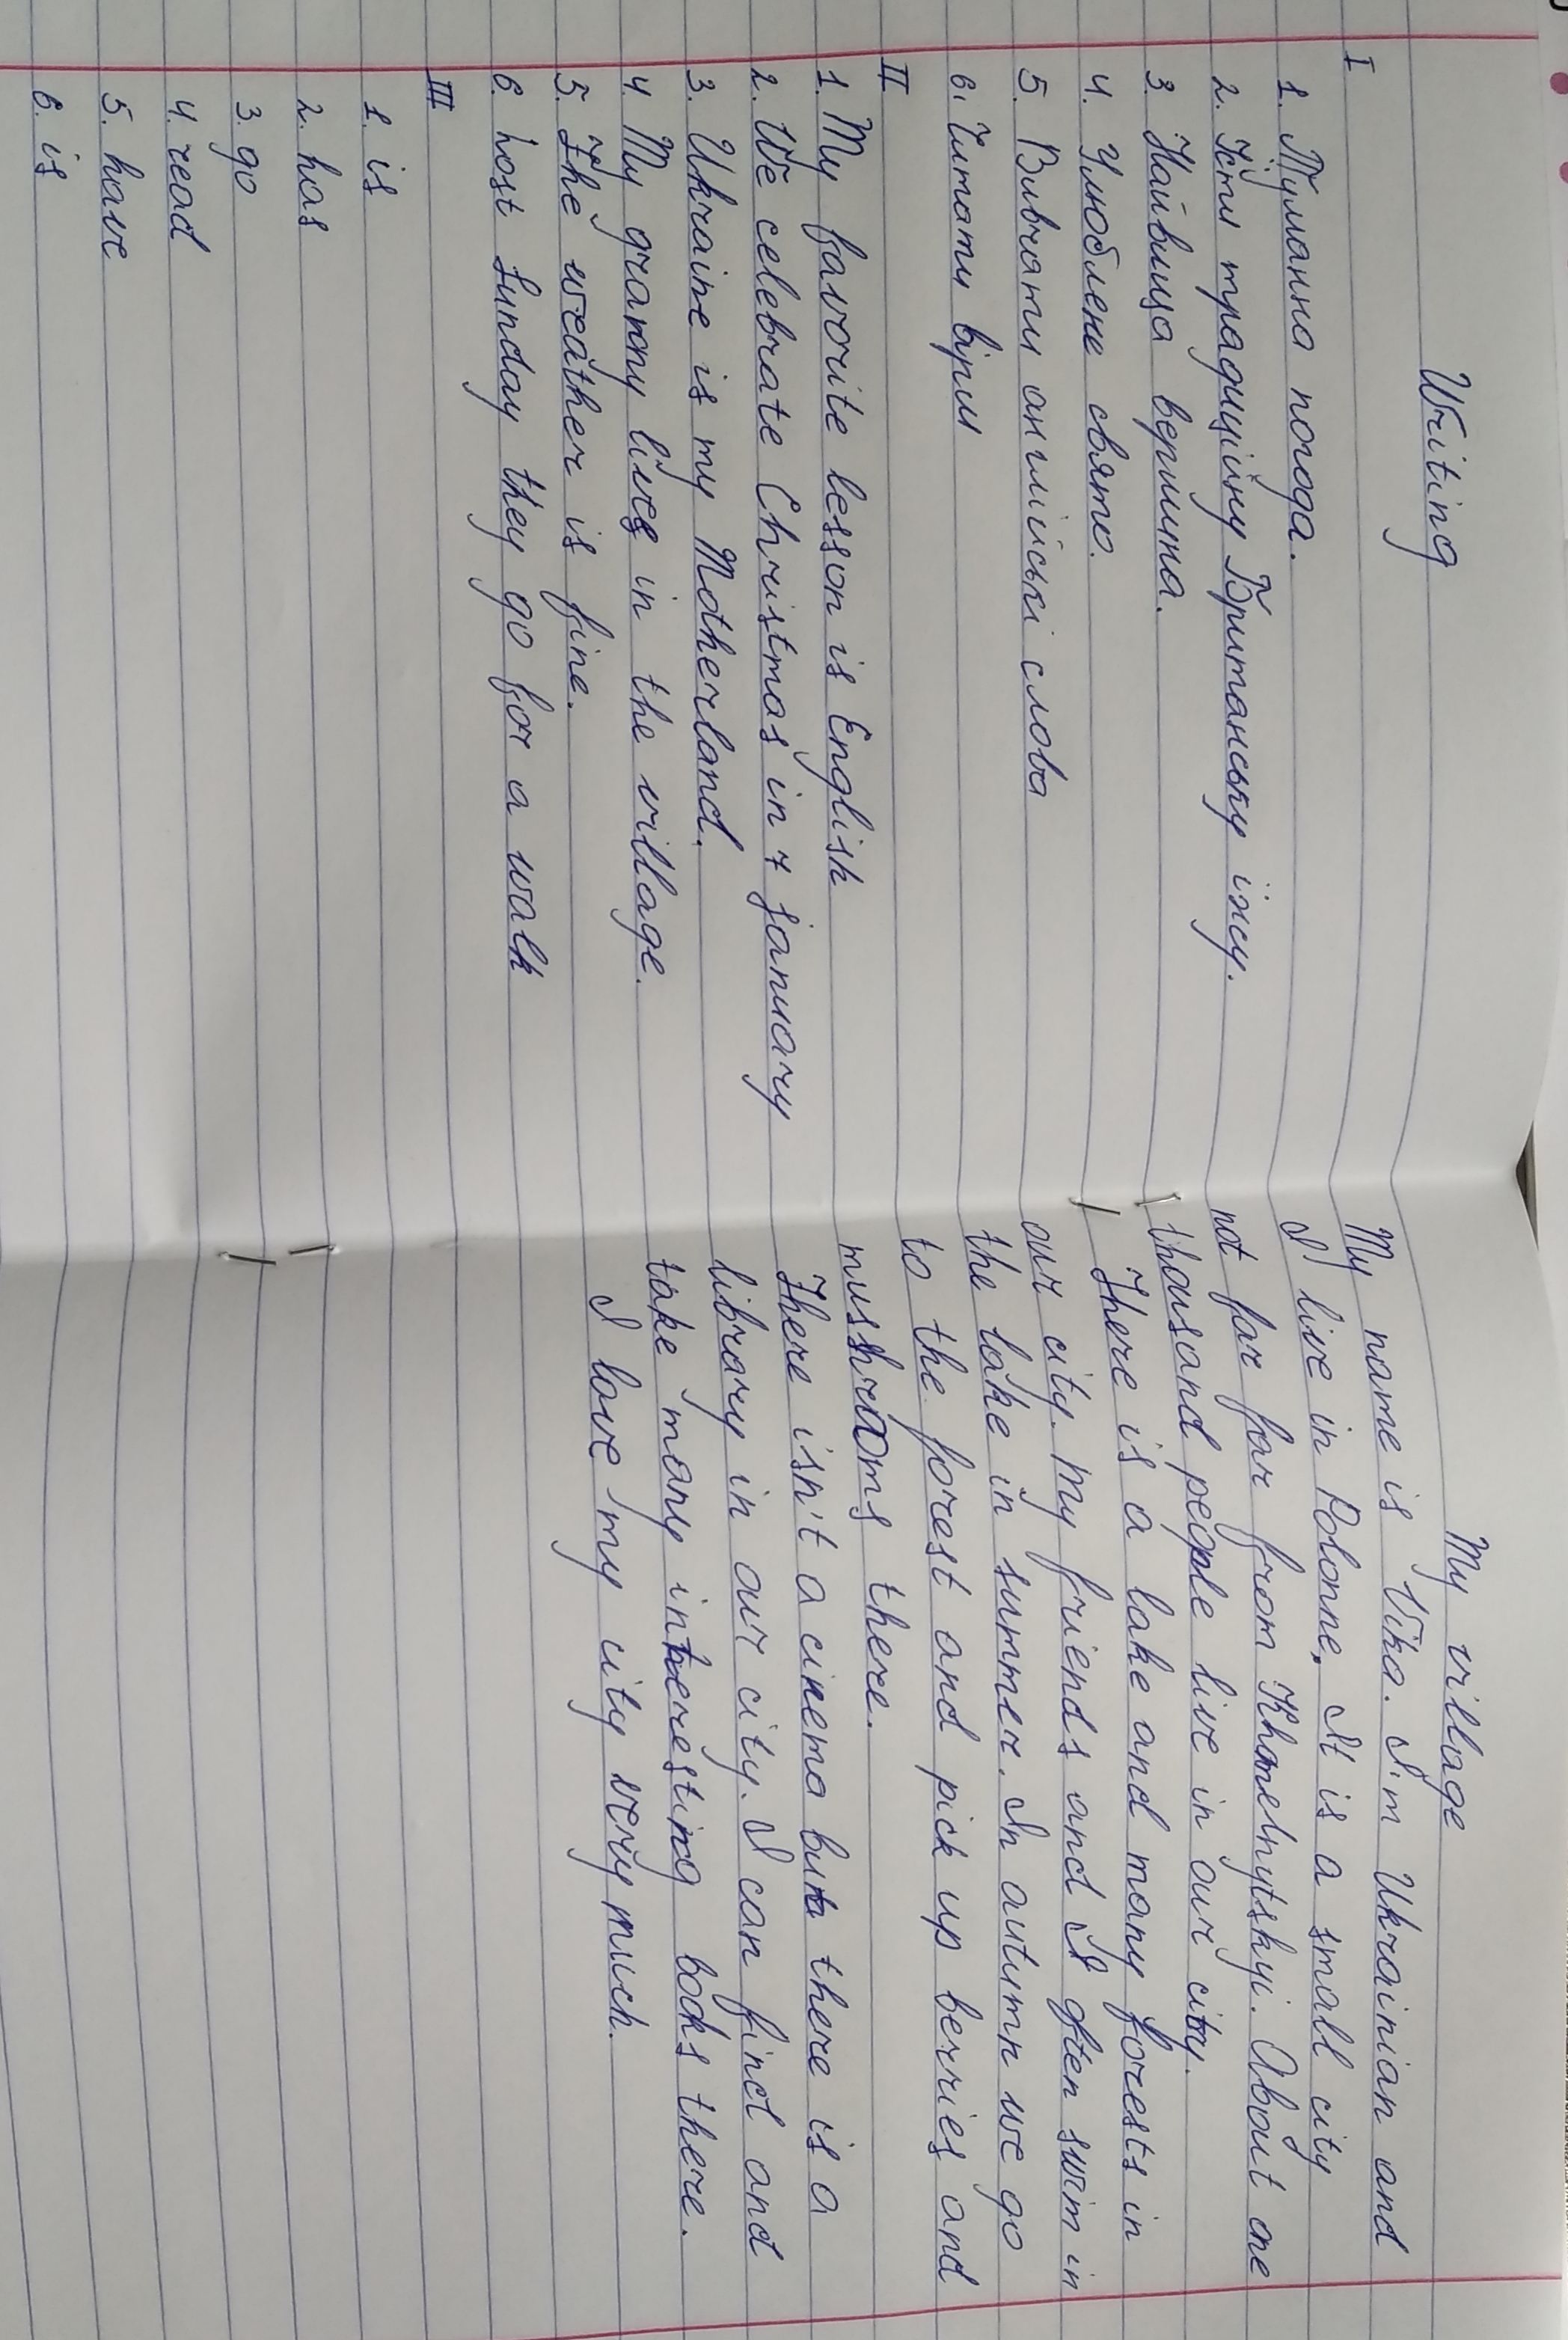 Writing
I
1. Туманна погода.
2. Їсти традиційну Британську їжу.
3. Найвища вершина.
4. Улюблене свято.
5. Вивчати англійські слова
6. Читати вірш
II
1. My favorite lesson is English
2. We celebrate Christmas in 7 january
3. Ukraine is my Motherland.
4. My granny lives in the village.
5. The weather is fine.
6. Last Sunday they go for a walk
III
1. is
2. has
3. go
4. read
5. have
6. is
My village
My name is Vika. I'm Ukrainian and
I live in Polonne. It is a small city
not far far from Khmelnytskyi. About one
thousand people live in our city.
There is a lake and many forests in
our city. My friends and I often swim in
the lake in summer. In autumn we go
to the forest and pick up berries and
mushrooms there.
There isn't a cinema but there is a
library in our city. I can find and
take many interesting books there.
I love my city very much.